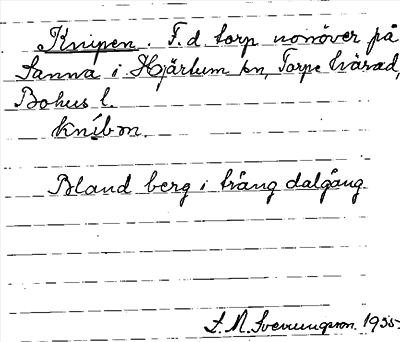 Knipen. F. d. torp norröver på
Sanna i Hjärtum sn, Torpe härad,
Bohus l.
knibm.
Bland berg i trång dalgång
S. M. Svenungsson. 1935.